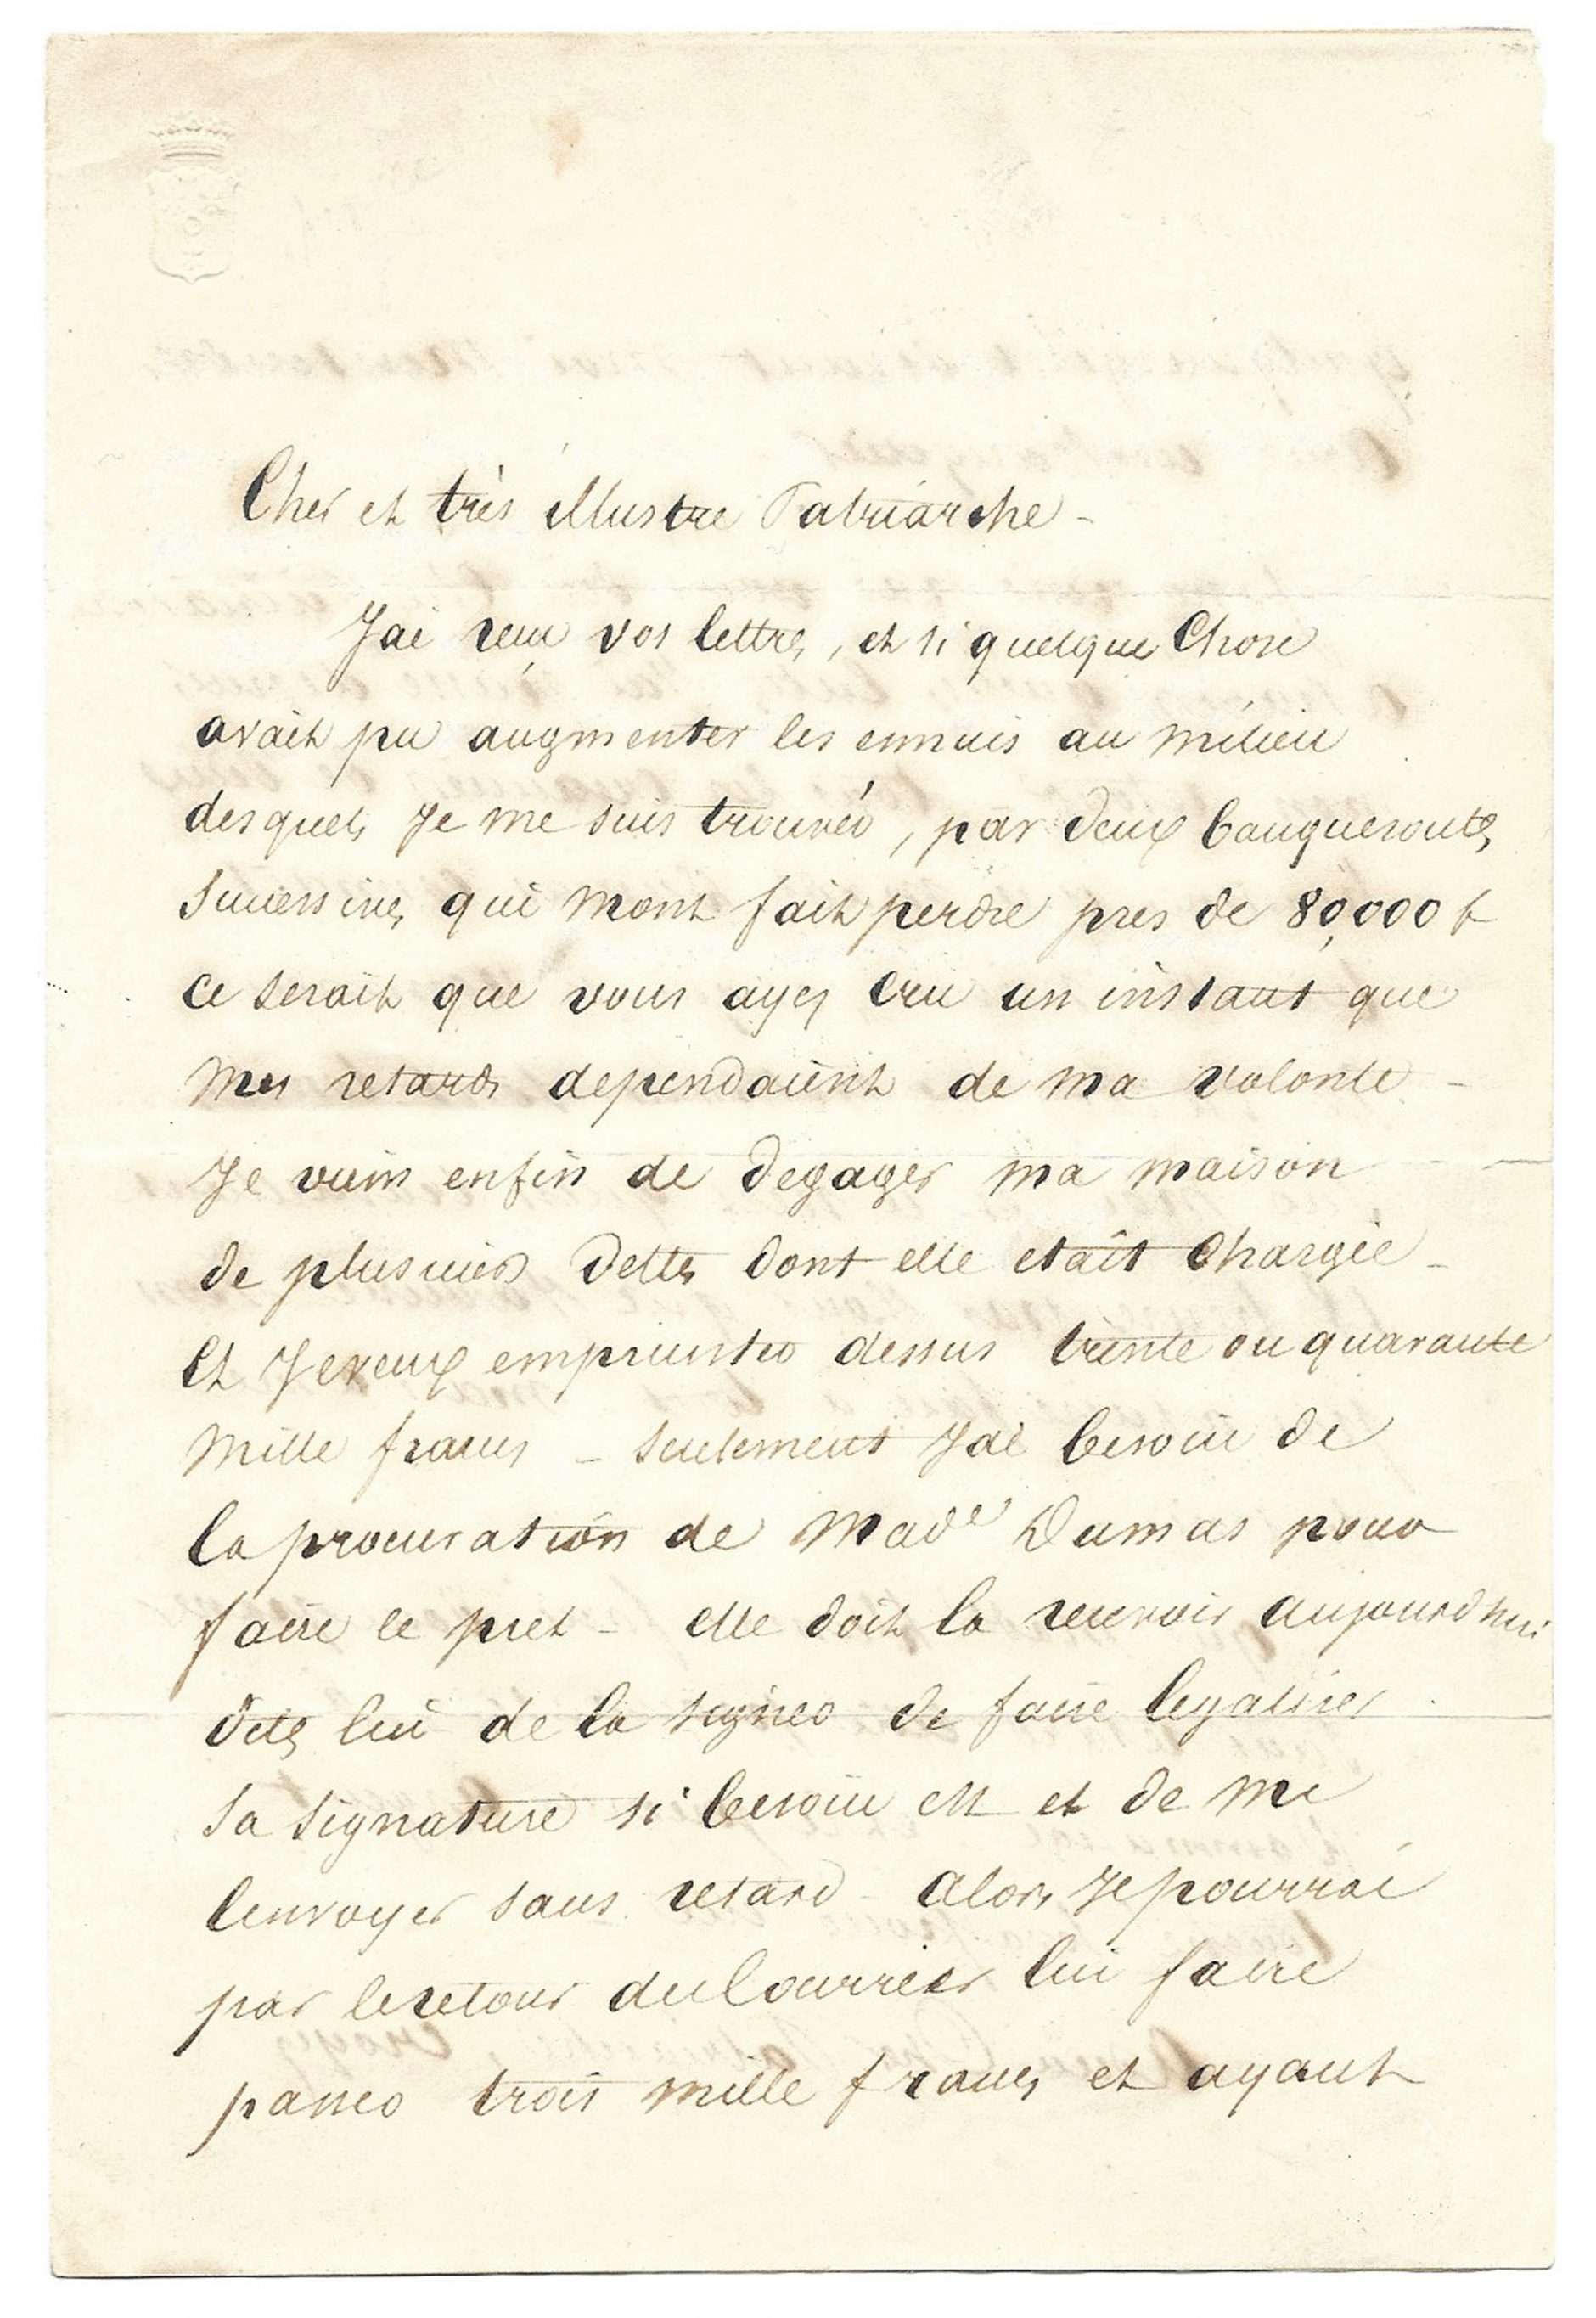 Cher et très illustre Patriarche -
Jai reçu vos lettres, et si quelque Chose
avait pu augmenter les ennuis au milieu
desquels Je me suis trouvé, par deux banqueroutes
successives qui mont fait perdre pres de 80,000 f
ce serait que vous ayez cru un instant que
mes retards dependaient de ma volonte -
Je viens enfin de degager ma maison -
de plusieurs dettes dont elle etait chargée -
Et Je veux emprunter dessus trente ou quarante
mille francs - seulement Jai besoin de
la procuration de Made Dumas pour
faire le pret - elle doit la recevoir aujourdhui
dites lui de la signer de faire legaliser
sa signature si besoin est et de me
lenvoyer sans retard - alors Je pourrai
par le retour du Courrier lui faire
passer trois mille francs et ayant